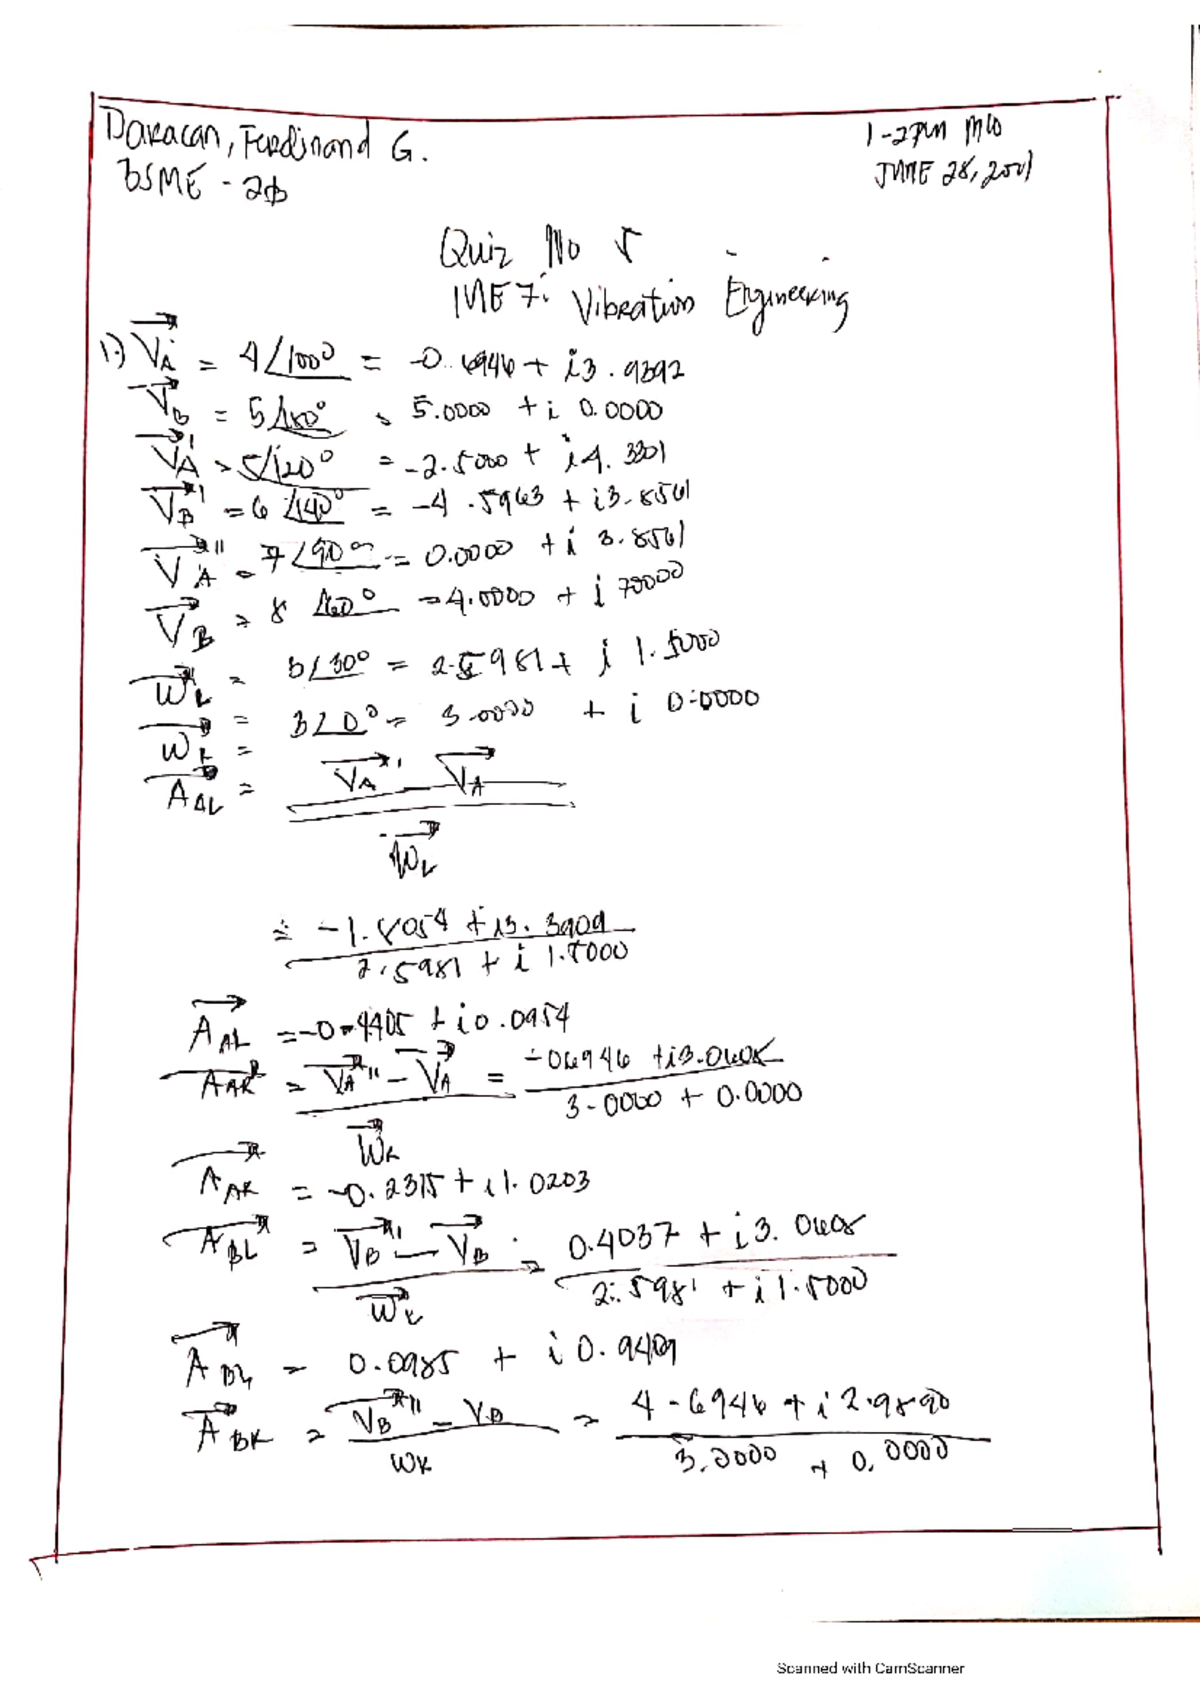 Daracan, Ferdinand G.
1-2pm MW
BSME - 2B
JUNE 28, 2001
Quiz No 5
ME 7: Vibration Engineering
1.) VA = 4∠100° = -0.6946 + i3.9392
VB = 5∠180° = 5.0000 + i 0.0000
VA' = 5∠120° = -2.5000 + i4.3301
VB' = 6∠140° = -4.5963 + i3.8561
VA'' = 7∠90° = 0.0000 + i 3.8561
VB = 8∠60° = 4.0000 + i 70000
WL = 3∠30° = 2.5981 + i 1.5000
WR = 3∠0° = 3.0000 + i 0.0000
AAL = VA' - VA
WL
= -1.8054 + i3.3909
2.5981 + i 1.5000
AAL = -0.4405 + i0.0954
AAR = VA'' - VA = -06946 + i3.0608
WR
3.0000 + 0.0000
AAR = -0.2315 + i1.0203
ABL = VB' - VB = 0.4037 + i3.0608
WL
2.5981 + i1.5000
ABL = 0.0985 + i0.9409
ABR = VB'' - VB = 4.6946 + i2.9890
WR
3.0000 + 0.0000
Scanned with CamScanner